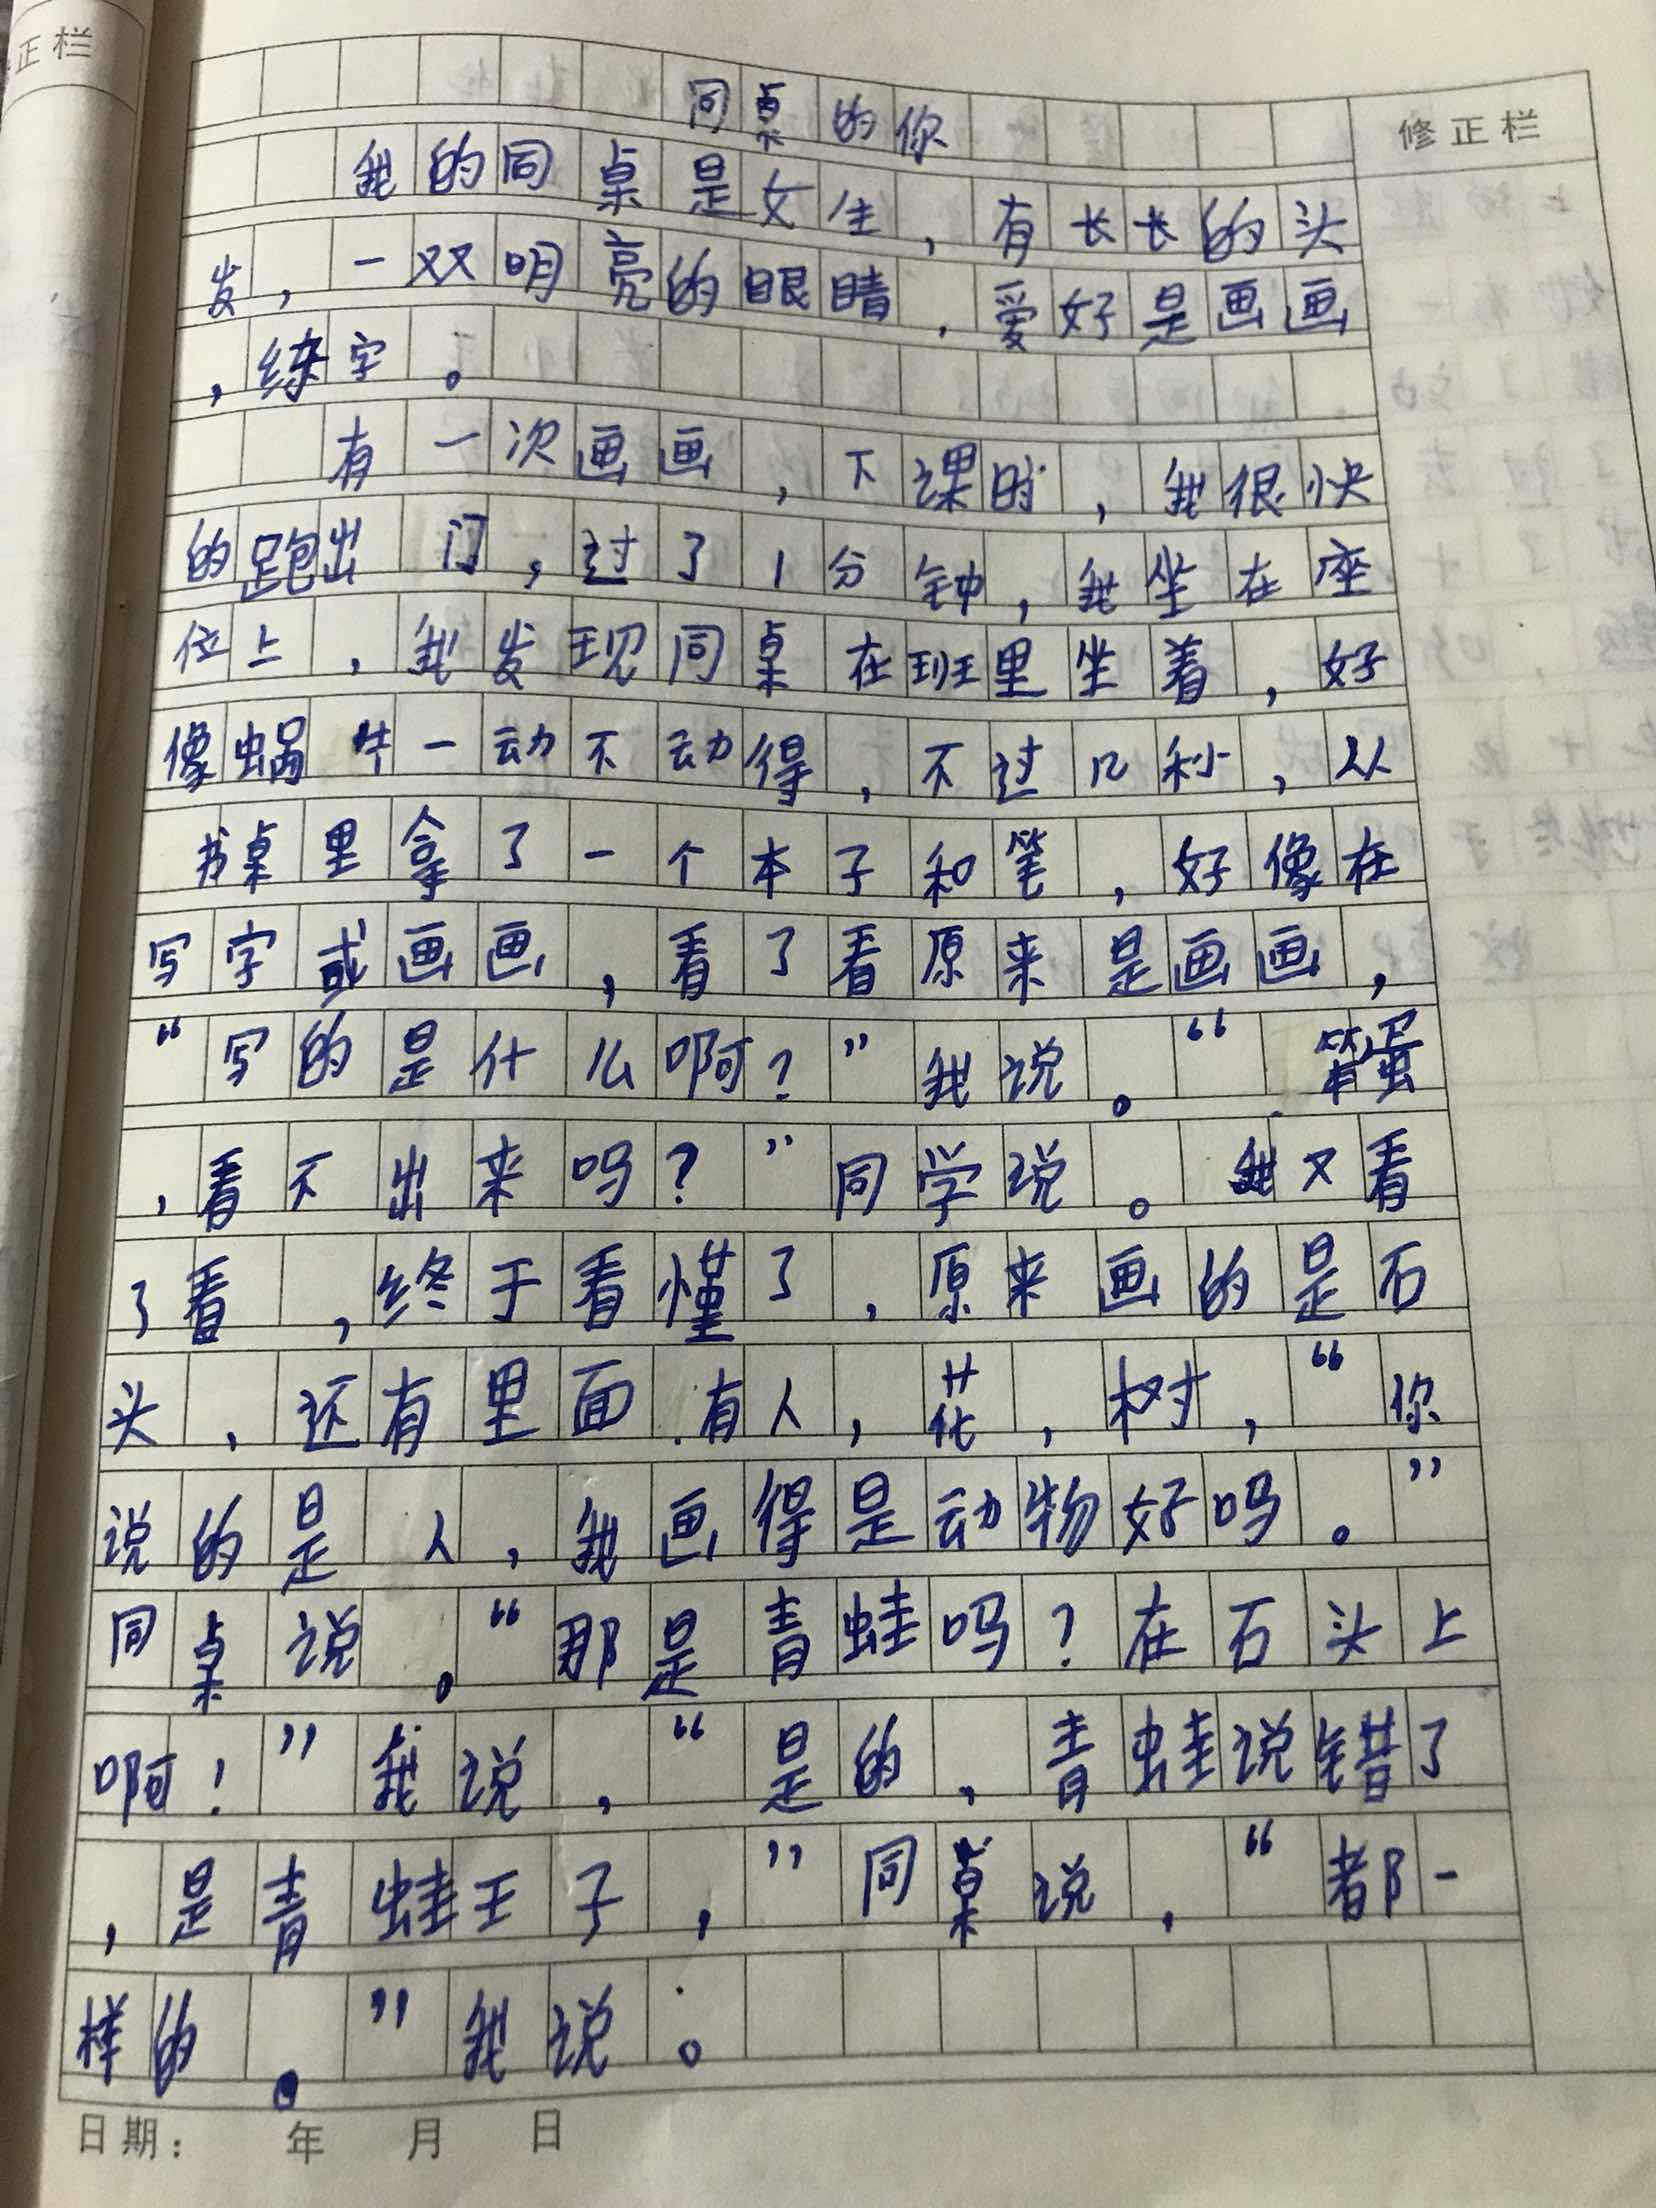 正栏
修正栏
同桌的你
我的同桌是女生,有长长的头
发,一双明亮的眼睛,爱好是画画
,练字。
有一次画画,下课时,我很快
的跑出门,过了1分钟,我坐在座
位上,我发现同桌在班里坐着,好
像蜗牛一动不动得,不过几秒,从
书桌里拿了一个本子和笔,好像在
写字或画画,看了看原来是画画,
“写的是什么啊?”我说。“笨蛋
,看不出来吗?”同学说。我又看
了看,终于看懂了,原来画的是石
头,还有里面有人,花,树,“你
说的是人,我画得是动物好吗。”
同桌说。“那是青蛙吗?在石头上
啊!”我说,“是的,青蛙说错了
,是青蛙王子,”同桌说,“都一
样的。”我说。
日期: 年 月 日